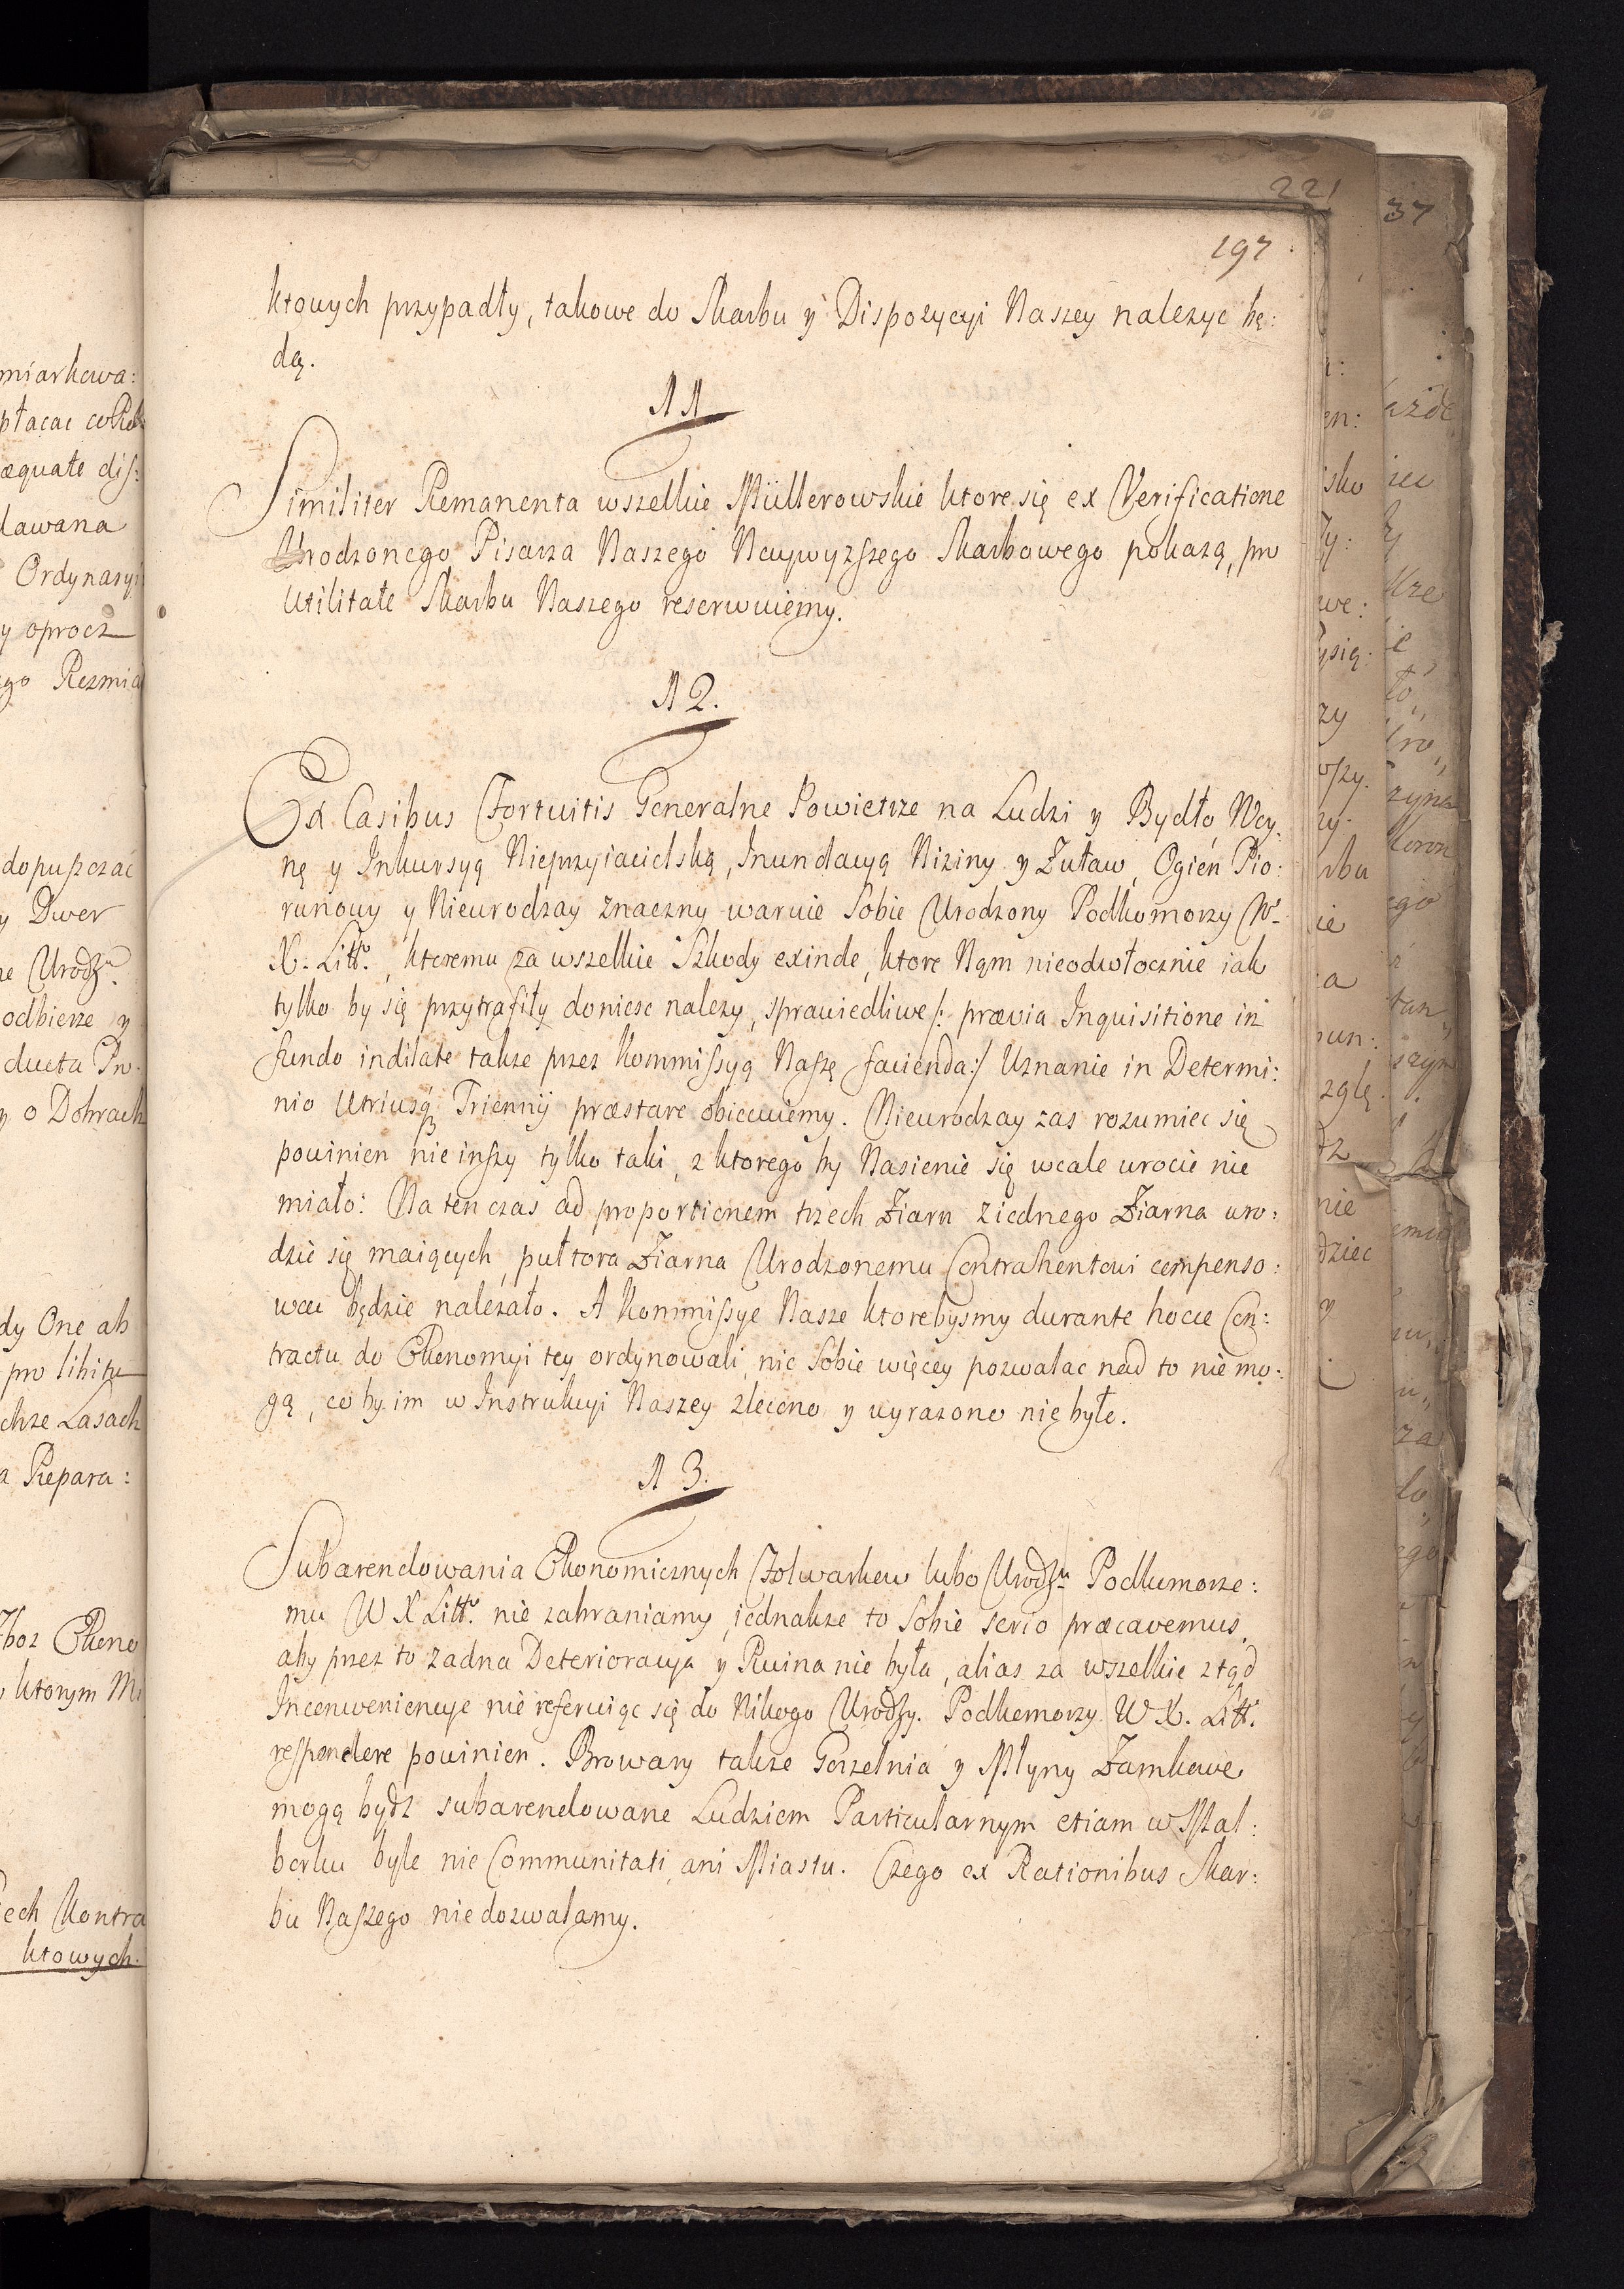 197
ktowych przypadły, takowe do Skarbu y Dispozycyi Naszey nalezyc bę:
dą.
11
Similiter Remanenta wszelkie Müllerowskie ktore się ex Verificatione
Urodzonego Pisarza Naszego Naywyzſzego Skarbowego pokazą, pro
Utilitate Skarbu Naszego reserwuiemy.
12.
Ex Casibus Fortuitis Generalne Powietrze na Ludzi y Bydło, Woy:
nę y Inkursyą Nieprzyiacielską, Inundacyą Niziny y Zuław, Ogień Pio:
runowy y Nieurodzay znaczny waruie Sobie Urodzony Podkomorzy W.
X. Litt., ktoremu za wszelkie Szkody exinde, ktore Nąm nieodwłocznie iak
tylko by się przytrafiły doniesc nalezy, sprawiedliwe /: prævia Inquisitione in
fundo indilate takze przez Kommiſsyą Naſzę facienda :/ Uznanie in Determi:
nio Utriusq Triennij præstare obiecuiemy. Nieurodzay zas rozumiec się
powinien nie inſzy tylko taki, z ktorego by Nasienie się wcale wrocic nie
miało: Na ten czas ad proportionem trzech Ziarn z iednego Ziarna uro:
dzic się maiących, pułtora Ziarna Urodzonemu Contrahentowi compenso:
wac będzie nalezało. A Kommiſsye Nasze ktorebysmy durante hocce Con:
tractu do Ekonomyi tey ordynowali, nic Sobie więcey pozwalac nad to nie mo:
gą, co by im w Instrukcyi Naszey zlecono y wyrazono nie było.
13.
Subarendowania Ekonomicznych Folwarkow lubo Urodzu Podkomorze:
mu W X Litt. nie zabraniamy, iednakze to Sobie serio præcavemus,
aby przez to zadna Deterioracya y Ruina nie była, alias za wszelkie ztąd
Inconweniencye nie referuiąc się do Nikogo Urodzy. Podkomorzy W X. Litt.
reſpondere powinien. Browary takze Gorzelnia y Młyny Zamkowe
mogą bydz subarendowane Ludziom Particularnym etiam w Mal:
borku byle nie Communitati, ani Miastu. Czego ex Rationibus Skar:
bu Naſzego nie dozwalamy.
221
37
miarkowa:
æquate diſ:
dawana
Ordynaryi
y oprocz
dopuſzczac
y Dwor
odbierze y
ducta Pro
y o Dobrach
dy One ab
pro libitu
Lasach
Repara:
ktorym
Kontra
ktowych.